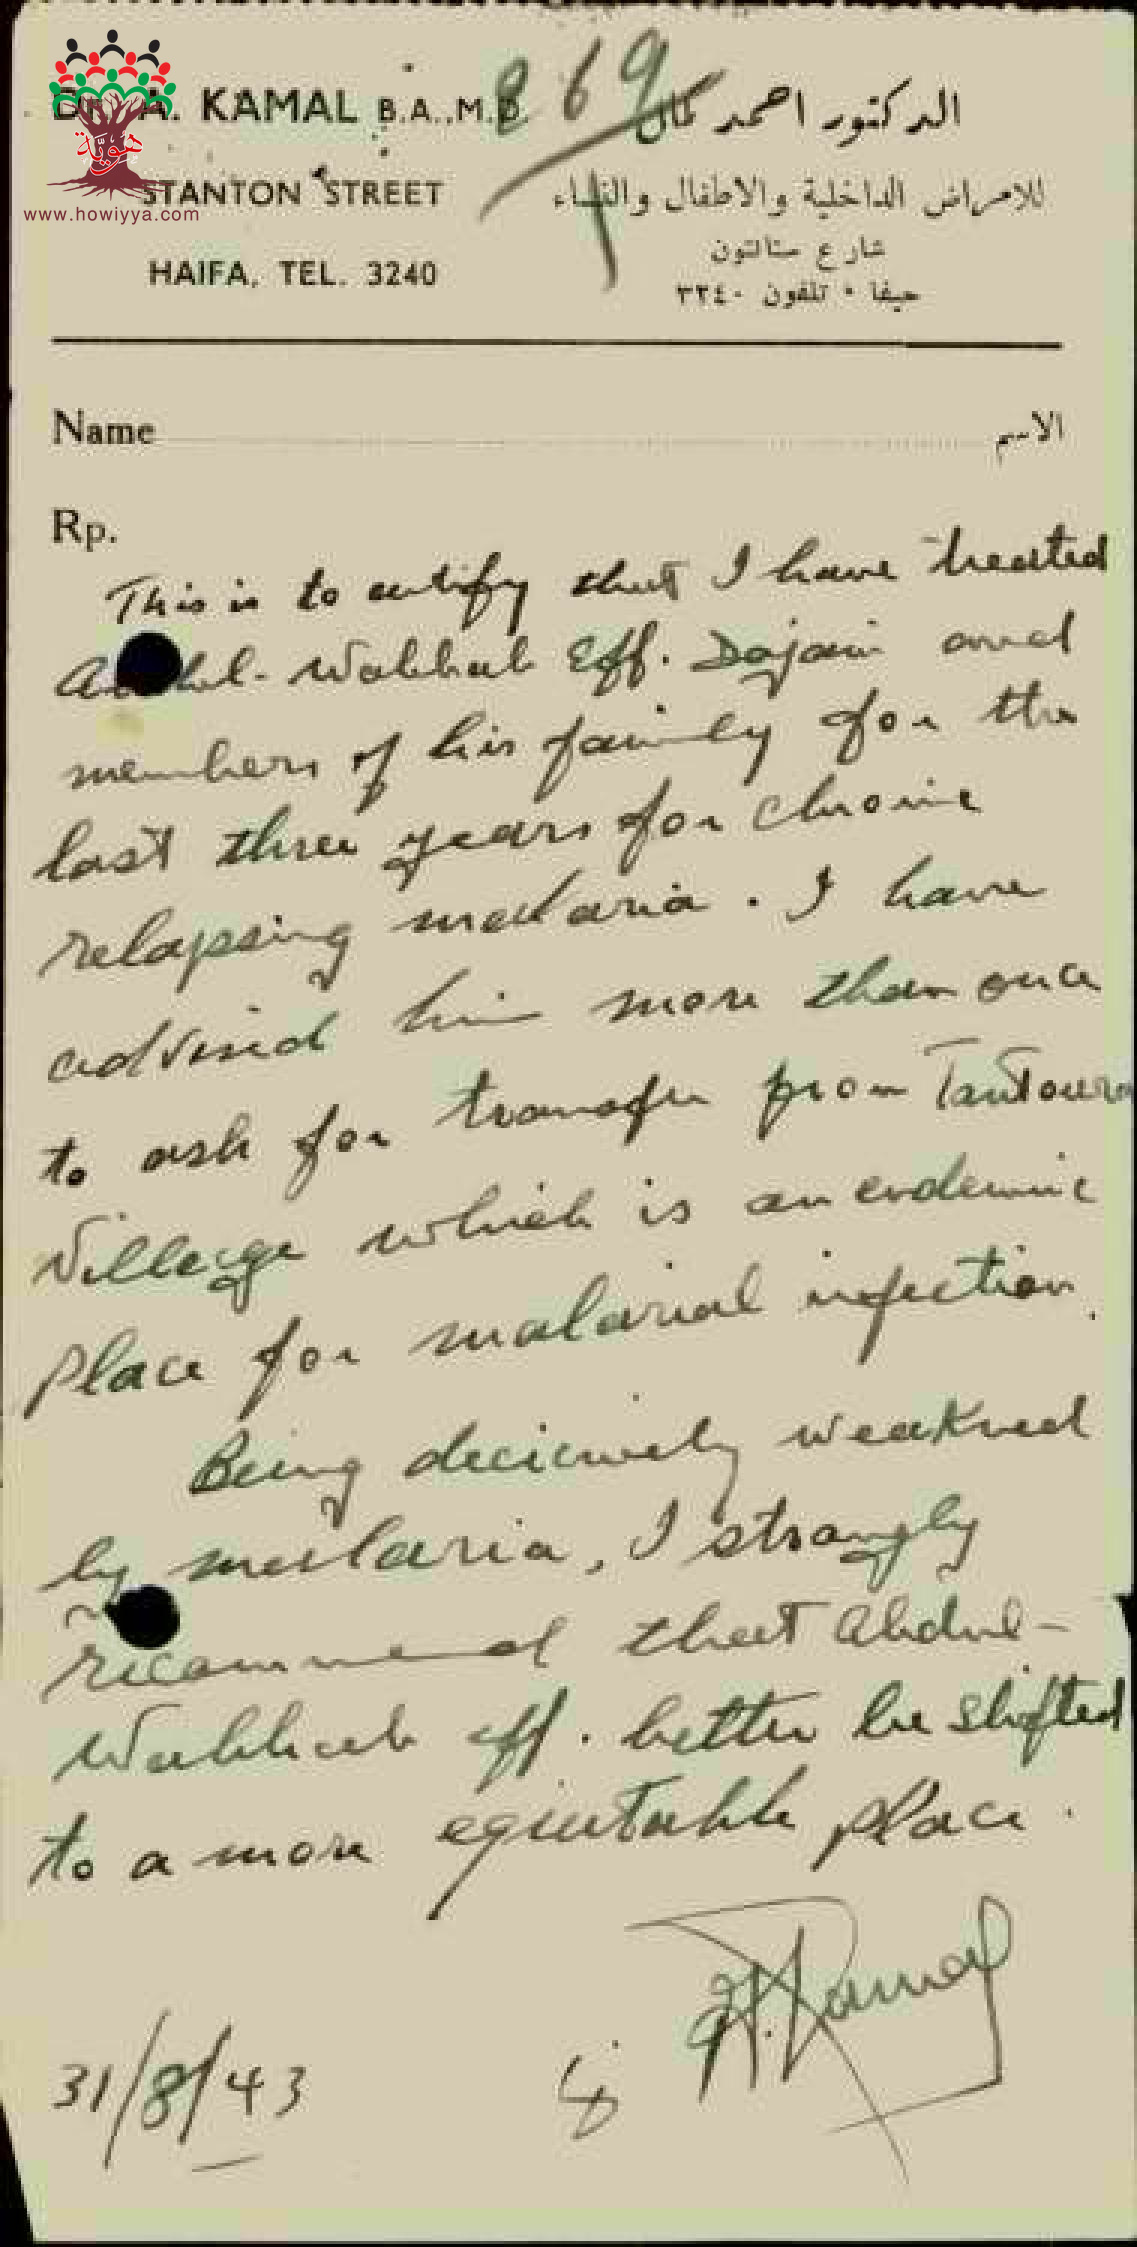 869
DR. A. KAMAL B.A.,M.D.
STANTON STREET
HAIFA, TEL. 3240
الدكتور احمد كمال
للامراض الداخلية والاطفال والنساء
شارع ستانتون
حيفا • تلفون ٣٢٤٠
هوية
www.howiyya.com
Name الاسم
Rp.
This is to certify that I have treated
Abdul-Wahhab Eff. Dajani and
members of his family for the
last three years for chronic
relapsing malaria. I have
advised him more than once
to ask for transfer from Tantoura
Village which is an endemic
place for malarial infection.
Being decisively weakned
by malaria, I strongly
recommend that Abdul-
Wahhab eff. better be shifted
to a more equitable place.
A. Kamal
31/8/43